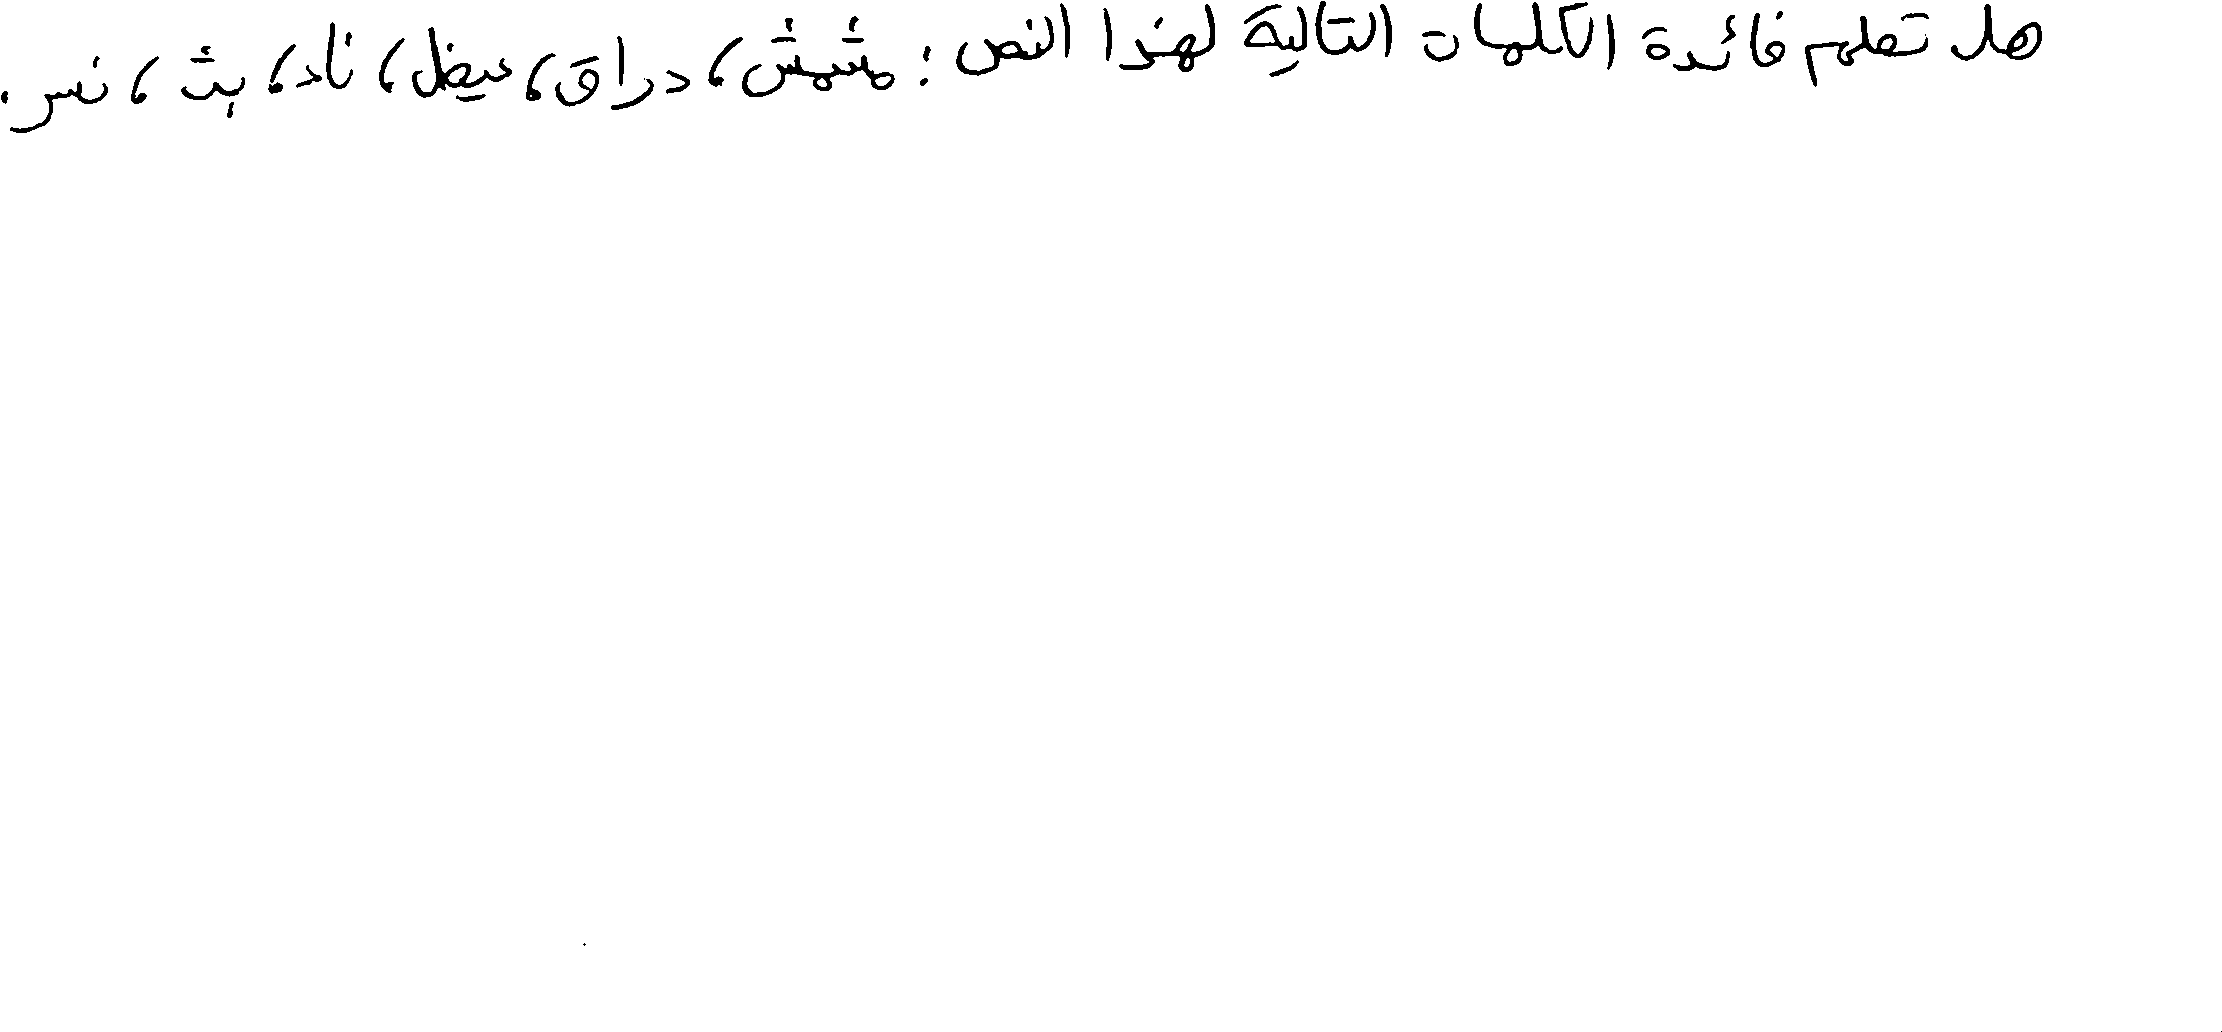 هل تعلم فائدة الكلمات التالية لهذا النص: مشمش، دراق، عيضل، ناد، بث، نس.